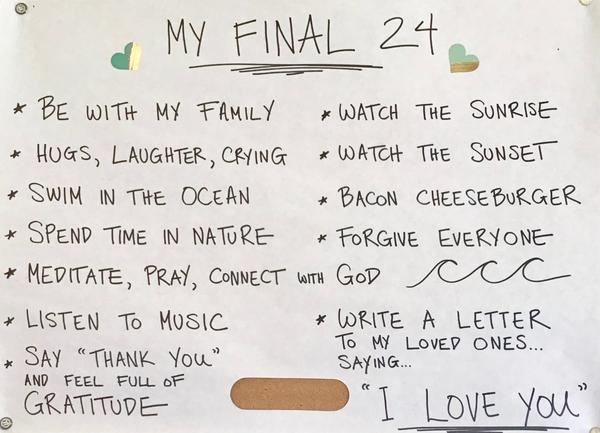 MY FINAL 24
* BE WITH MY FAMILY
* HUGS, LAUGHTER, CRYING
* SWIM IN THE OCEAN
* SPEND TIME IN NATURE
* MEDITATE, PRAY, CONNECT WITH GOD
* LISTEN TO MUSIC
* SAY "THANK YOU"
AND FEEL FULL OF
GRATITUDE
* WATCH THE SUNRISE
* WATCH THE SUNSET
* BACON CHEESEBURGER
* FORGIVE EVERYONE
* WRITE A LETTER
TO MY LOVED ONES...
SAYING...
"I LOVE YOU"